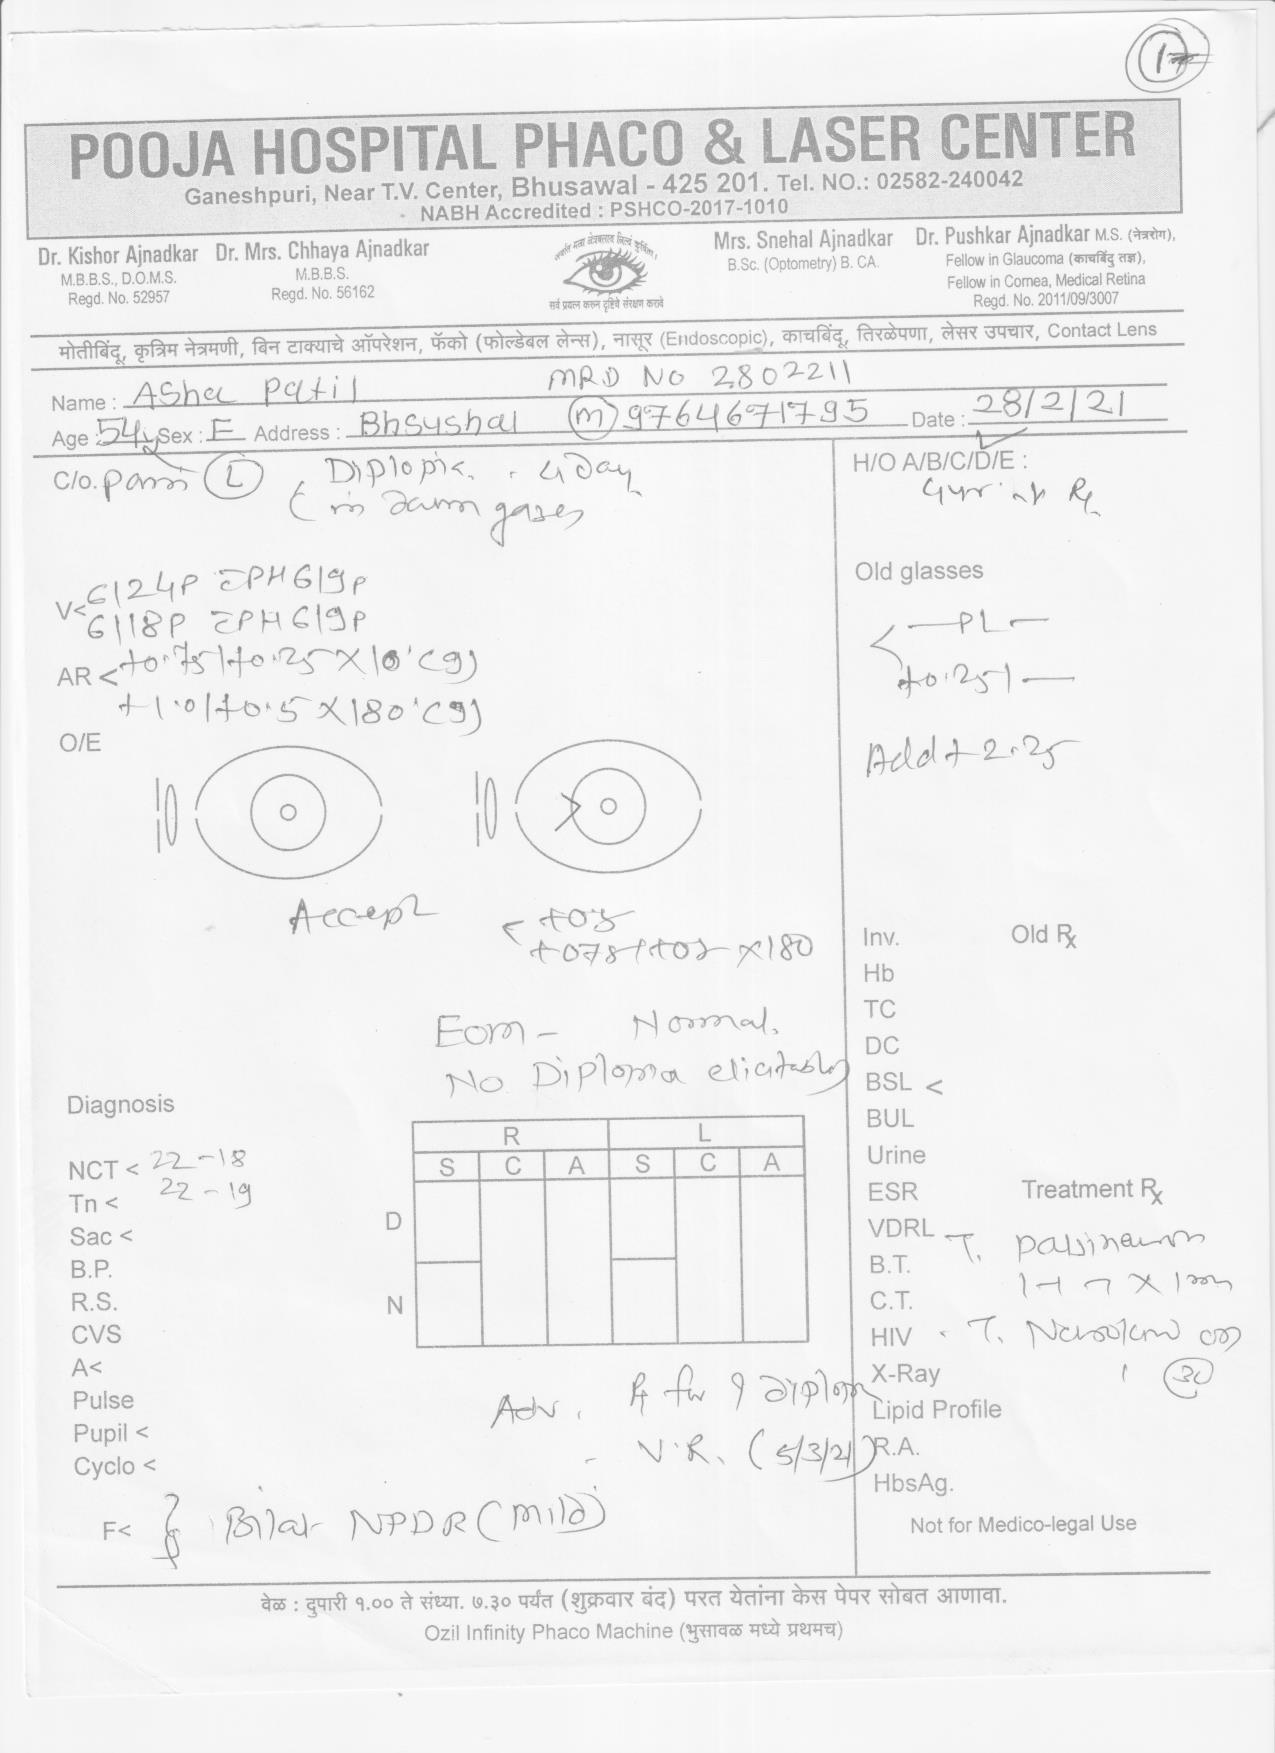 1
POOJA HOSPITAL PHACO & LASER CENTER
Ganeshpuri, Near T.V. Center, Bhusawal - 425 201. Tel. NO.: 02582-240042
NABH Accredited : PSHCO-2017-1010
Dr. Kishor Ajnadkar
M.B.B.S., D.O.M.S.
Regd. No. 52957
Dr. Mrs. Chhaya Ajnadkar
M.B.B.S.
Regd. No. 56162
सर्व प्रयत्न करून दृष्टिचे संरक्षण करावे
Mrs. Snehal Ajnadkar
B.Sc. (Optometry) B. CA.
Dr. Pushkar Ajnadkar M.S. (नेत्ररोग),
Fellow in Glaucoma (काचबिंदु तज्ञ),
Fellow in Cornea, Medical Retina
Regd. No. 2011/09/3007
मोतीबिंदू, कृत्रिम नेत्रमणी, बिन टाक्याचे ऑपरेशन, फॅको (फोल्डेबल लेन्स), नासूर (Endoscopic), काचबिंदू, तिरळेपणा, लेसर उपचार, Contact Lens
Name : Asha Patil MRD NO 2802211
Age : 54y Sex : F Address : Bhsushal (M) 9764671795 Date : 28/2/21
C/o. Pain L Diplopia. 4 day
in down gazes
H/O A/B/C/D/E :
4yr Rx
V< 6/24P PH 6/9P
6/18P PH 6/9P
AR < +0.75/+0.25 X 10° (9)
+1.0/+0.5 X 180° (9)
Old glasses
< — PL —
+0.25 / —
Add + 2.25
O/E
Accept < +05
+075/+05 X 180
EOM - Normal.
No Diplopia elicitable
Diagnosis
NCT < 22 - 18
22 - 19
Tn <
Sac <
B.P.
R.S.
CVS
A<
Pulse
Pupil <
Cyclo <
R L
S C A S C A
D
N
Adv. Rx for ? diplopia
- V.R. (5/3/21)
F< Bilat NPDR (Mild)
Inv. Old Rx
Hb
TC
DC
BSL <
BUL
Urine
ESR Treatment Rx
VDRL T.
B.T. X 1m
C.T.
HIV T.
X-Ray 1 30
Lipid Profile
R.A.
HbsAg.
Not for Medico-legal Use
वेळ : दुपारी १.०० ते संध्या. ७.३० पर्यंत (शुक्रवार बंद) परत येतांना केस पेपर सोबत आणावा.
Ozil Infinity Phaco Machine (भुसावळ मध्ये प्रथमच)